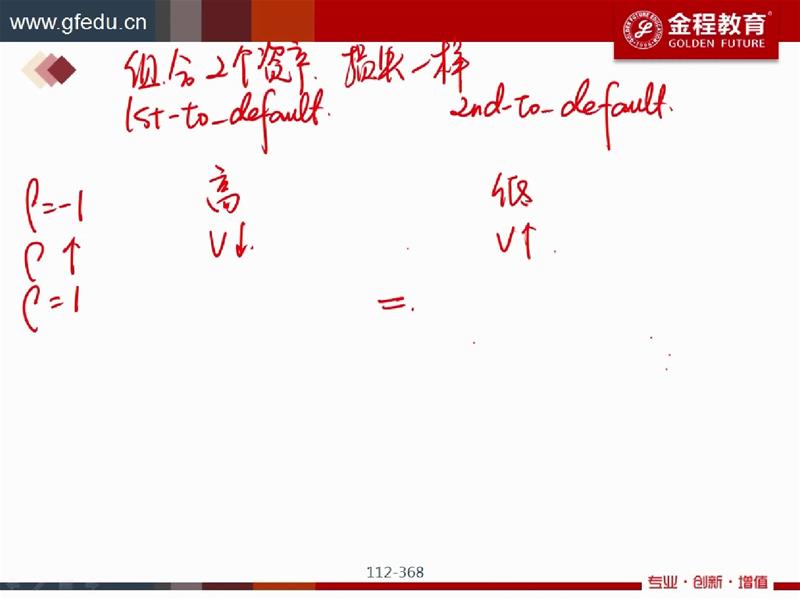 www.gfedu.cn
金程教育®
GOLDEN FUTURE
组合2个资产 损失一样
1st-to-default. 2nd-to-default.
ρ=-1 高 低
ρ↑ V↓. V↑.
ρ=1 =.
112-368
专业·创新·增值